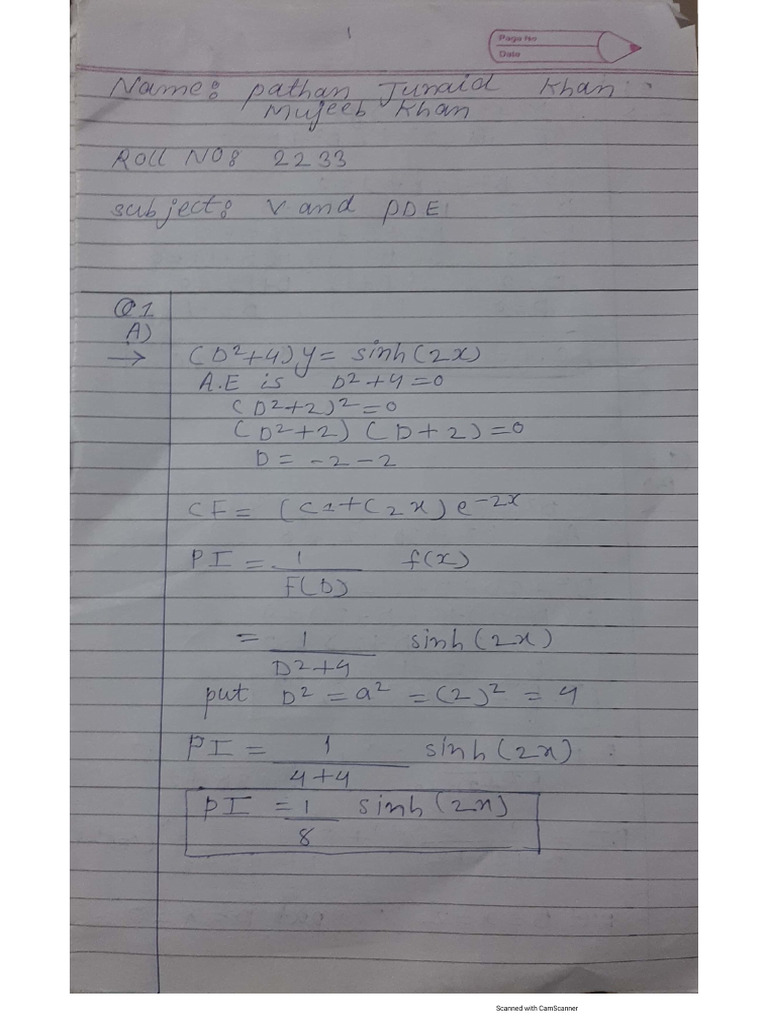 1
Page No
Date
Name: Pathan Junaid Khan
Mujeeb Khan
Roll No: 2233
subject: V and PDE
Q1
A)
→ (D²+4)y = sinh(2x)
A.E is D²+4=0
(D²+2)²=0
(D²+2) (D+2)=0
D = -2-2
CF = (C1+C2x)e-2x
PI = 1/F(D) f(x)
= 1/D²+4 sinh(2x)
put D² = a² = (2)² = 4
PI = 1/4+4 sinh(2x)
PI = 1/8 sinh(2x)
Scanned with CamScanner